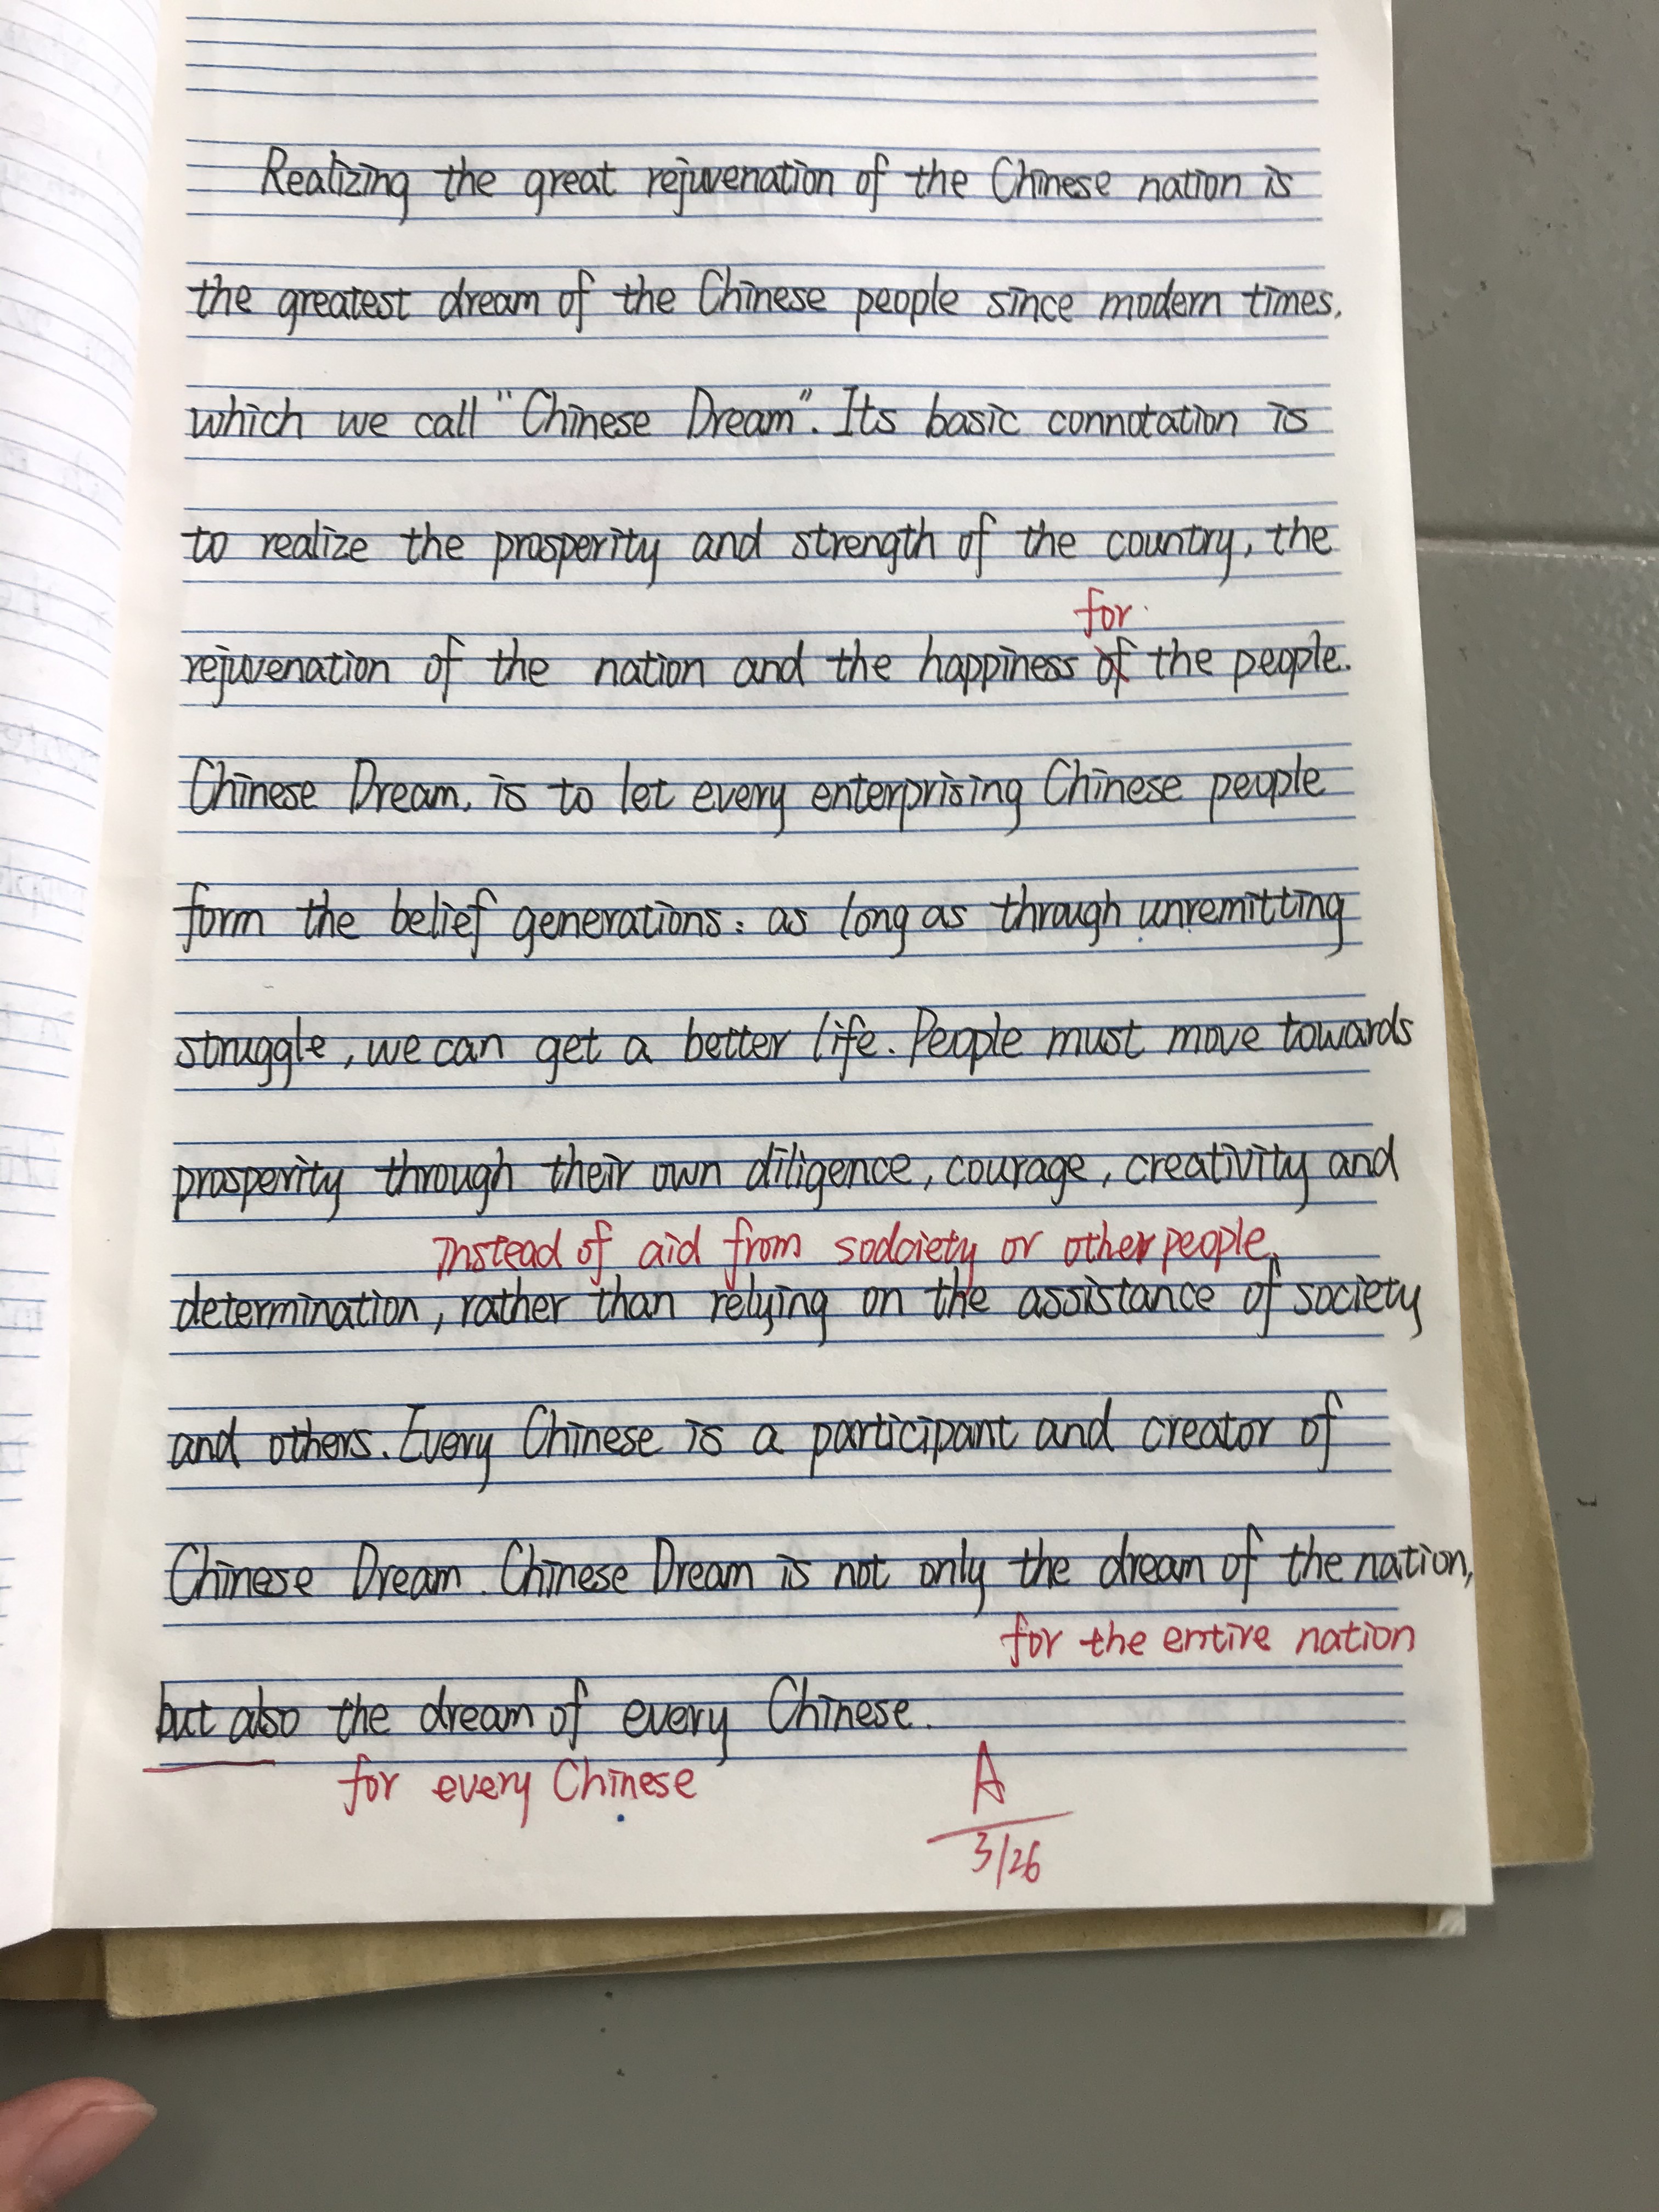 Realizing the great rejuvenation of the Chinese nation is
the greatest dream of the Chinese people since modern times,
which we call "Chinese Dream". Its basic connotation is
to realize the prosperity and strength of the country, the
for
rejuvenation of the nation and the happiness of the people.
Chinese Dream, is to let every enterprising Chinese people
form the belief generations: as long as through unremitting
struggle, we can get a better life. People must move towards
prosperity through their own diligence, courage, creativity and
instead of aid from sodciety or other people.
determination, rather than relying on the assistance of society
and others. Every Chinese is a participant and creator of
Chinese Dream. Chinese Dream is not only the dream of the nation,
for the entire nation
but also the dream of every Chinese.
for every Chinese
A
3/26